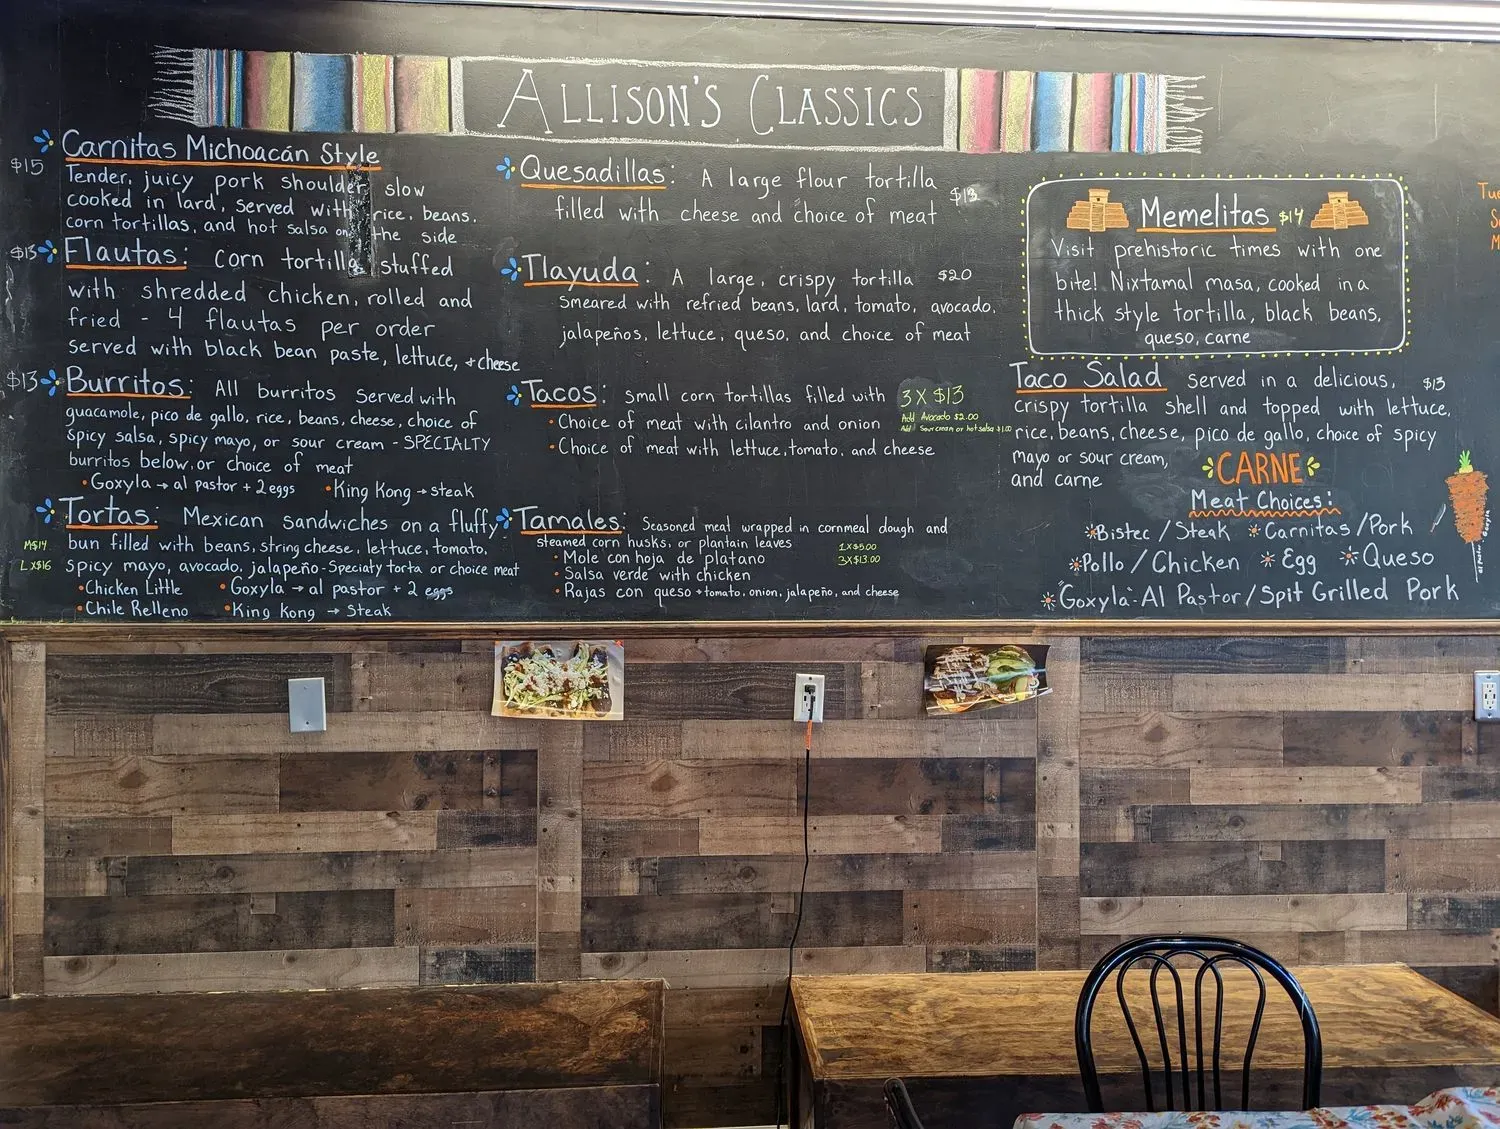 ALLISON'S CLASSICS
Carnitas Michoacán Style
$15
Tender, juicy pork shoulder slow
cooked in lard, served with rice, beans,
corn tortillas, and hot salsa on the side
$13 Flautas: corn tortilla stuffed
with shredded chicken, rolled and
fried - 4 flautas per order
served with black bean paste, lettuce, + cheese
$13 Burritos: All burritos served with
guacamole, pico de gallo, rice, beans, cheese, choice of
spicy salsa, spicy mayo, or sour cream - SPECIALTY
burritos below, or choice of meat
• Goxyla → al pastor + 2 eggs • King Kong → steak
Tortas: Mexican sandwiches on a fluffy
M$14 bun filled with beans, string cheese, lettuce, tomato,
L X$16 spicy mayo, avocado, jalapeño - Specialty torta or choice meat
• Chicken Little • Goxyla → al pastor + 2 eggs
• Chile Relleno • King Kong → steak
Quesadillas: A large flour tortilla $13
filled with cheese and choice of meat
Tlayuda: A large, crispy tortilla $20
smeared with refried beans, lard, tomato, avocado,
jalapeños, lettuce, queso, and choice of meat
Tacos: small corn tortillas filled with 3 X $13
• Choice of meat with cilantro and onion
Add Avocado $2.00
Add Sour cream or hot salsa $1.00
• Choice of meat with lettuce, tomato, and cheese
Tamales: Seasoned meat wrapped in cornmeal dough and
steamed corn husks, or plantain leaves
1X$5.00
• Mole con hoja de platano
3X$13.00
• Salsa verde with chicken
• Rajas con queso + tomato, onion, jalapeño, and cheese
Memelitas $14
Visit prehistoric times with one
bite! Nixtamal masa, cooked in a
thick style tortilla, black beans,
queso, carne
Taco Salad served in a delicious, $13
crispy tortilla shell and topped with lettuce,
rice, beans, cheese, pico de gallo, choice of spicy
mayo or sour cream,
and carne
CARNE
Meat Choices:
Bistec / Steak Carnitas / Pork
Pollo / Chicken Egg Queso
Goxyla-Al Pastor / Spit Grilled Pork
Tue